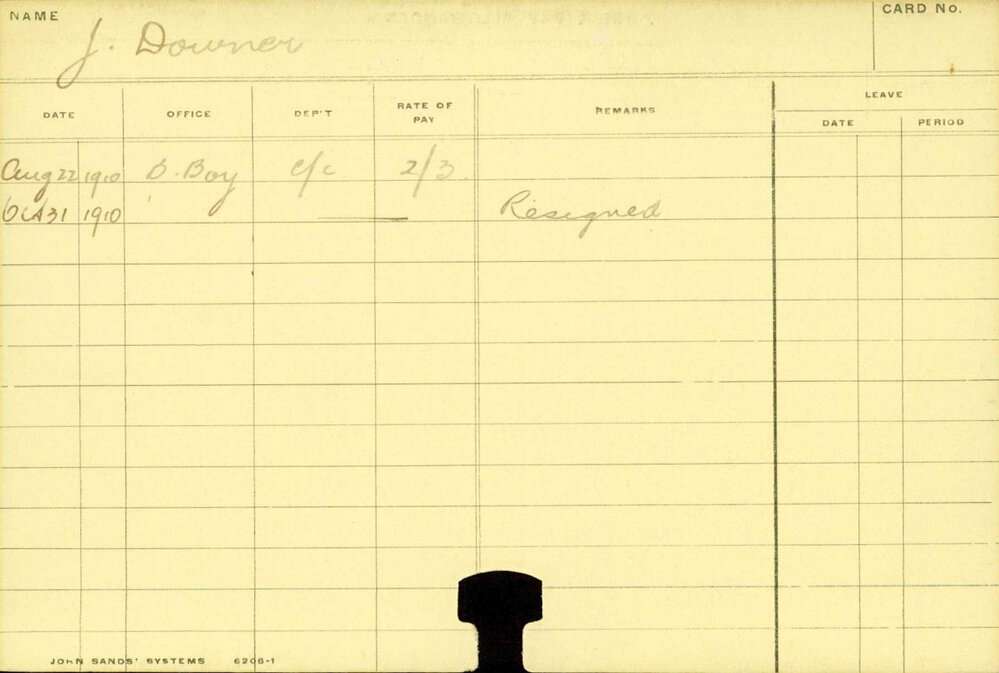 NAME J. Downer CARD No.
DATE OFFICE DEP'T RATE OF PAY REMARKS LEAVE
DATE PERIOD
Aug 22 1910 D. Boy C/C 2/3
Oct 31 1910 Resigned
JOHN SANDS' SYSTEMS 6206-1